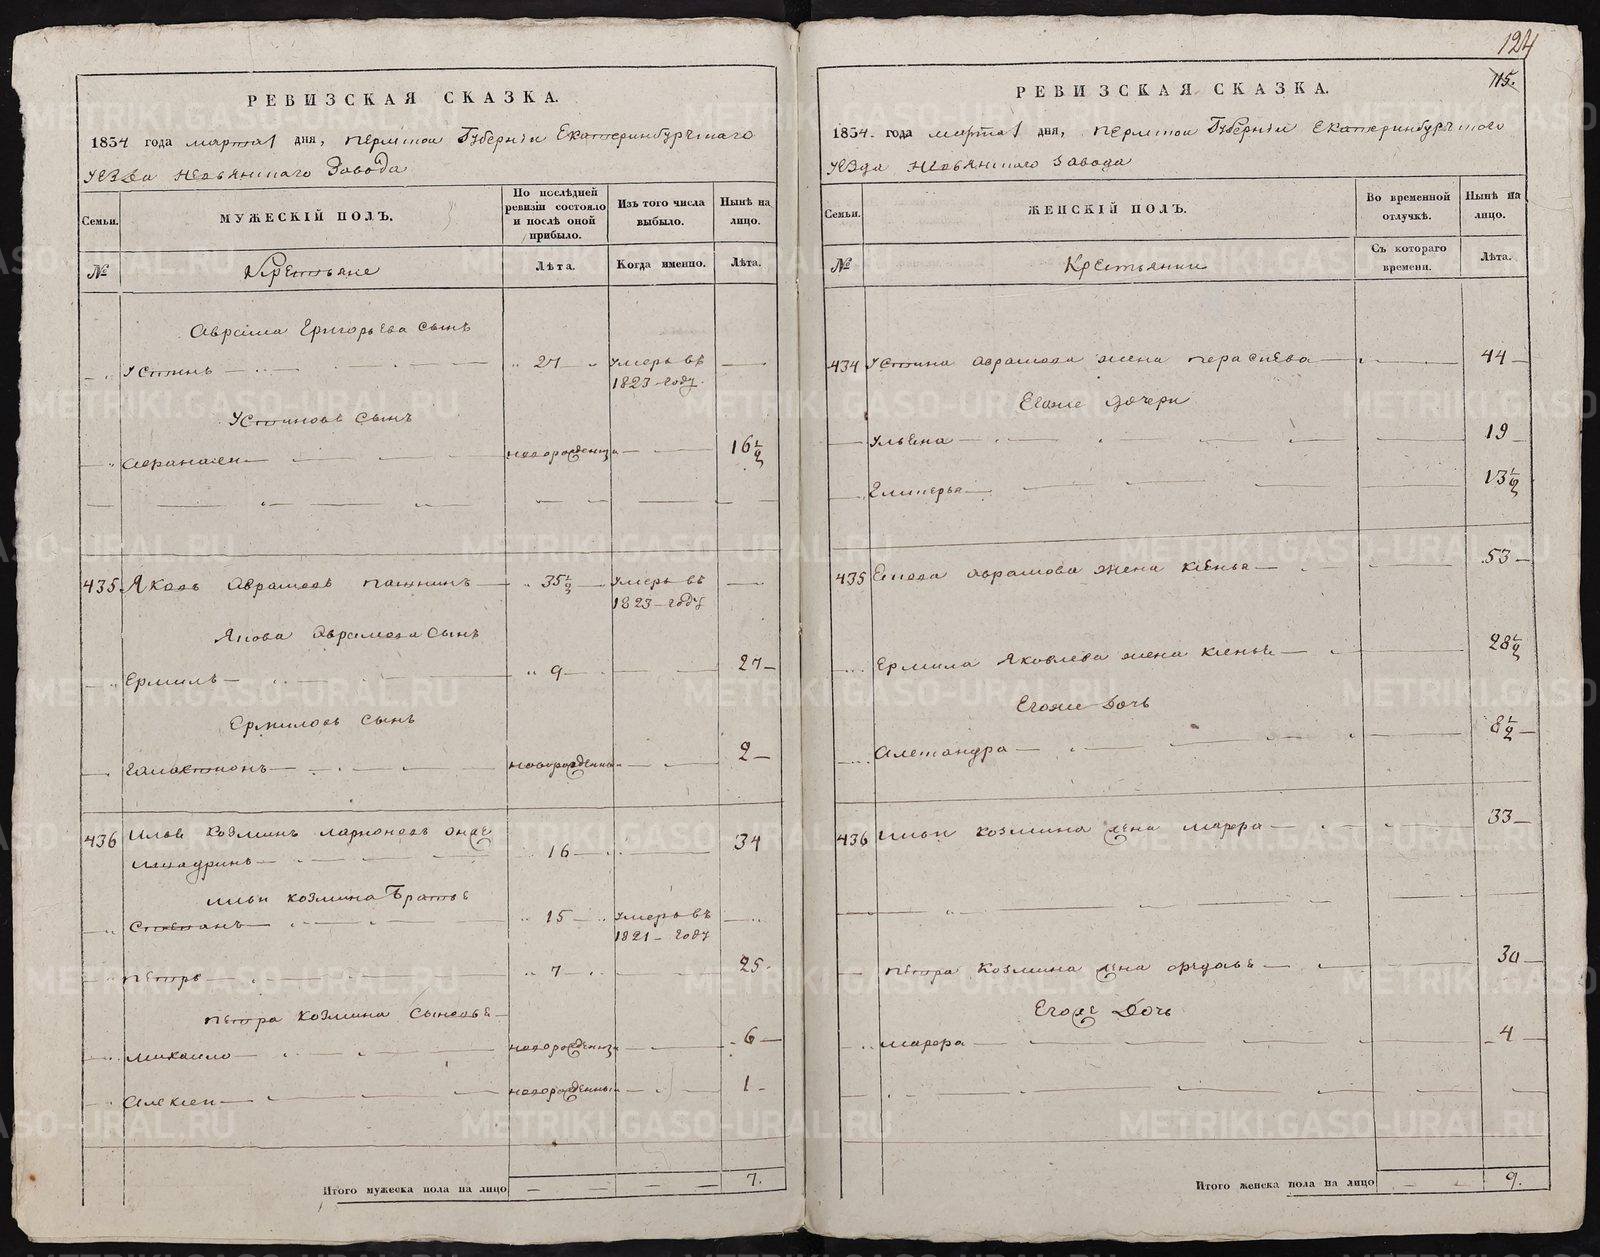 124
115.
РЕВИЗСКАЯ СКАЗКА.
1834 года марта 1 дня, пермскои Губерніи Екатеринбургскаго
уезда невьянскаго Завода
Семьи.
МУЖЕСКІЙ ПОЛЪ.
По послѣдней ревизіи состояло и послѣ оной прибыло.
Изъ того числа выбыло.
Нынѣ на лицо.
№
Крестьяне
Лѣта.
Когда именно.
Лѣта.
Аврама Григорьева сынъ
Устинъ 27 умеръ въ
1823 году.
Устиновъ сынъ
Афанасеи новорожденны 16 1/2
435 Яковъ Аврамовъ 35 1/2 умеръ въ
1823 году
Якова Аврамова сынъ
Ермилъ 9 27
Ермиловъ сынъ
Галактионъ новорожденны 2
436 Илья Козминъ Ларионовъ онже
16 34
Ильи Козмина Братья
Степанъ 15 умеръ въ
1821 году
Петръ 7 25
Петра Козмина Сыновья
Михаило новорожденны 6
Алексеи новорожденны 1
Итого мужеска пола на лицо 7.
РЕВИЗСКАЯ СКАЗКА.
1834 года марта 1 дня, пермскои Губерніи Екатеринбургскаго
уезда невьянскаго завода
Семьи.
ЖЕНСКІЙ ПОЛЪ.
Во временной отлучкѣ.
Нынѣ на лицо.
№
Крестьянки
Съ котораго времени.
Лѣта.
434 Устина Аврамова жена 44
Егоже дочери
Ульяна 19
13 1/2
435 Якова Аврамова жена 53
Ермила Яковлева жена 28 1/2
Егоже Дочь
Александра 8 1/2
436 Ильи Козмина жена Марфа 33
Петра Козмина жена 30
Егоже Дочь
Марфа 4
Итого женска пола на лицо 9.
METRIKI.GASO-URAL.RU